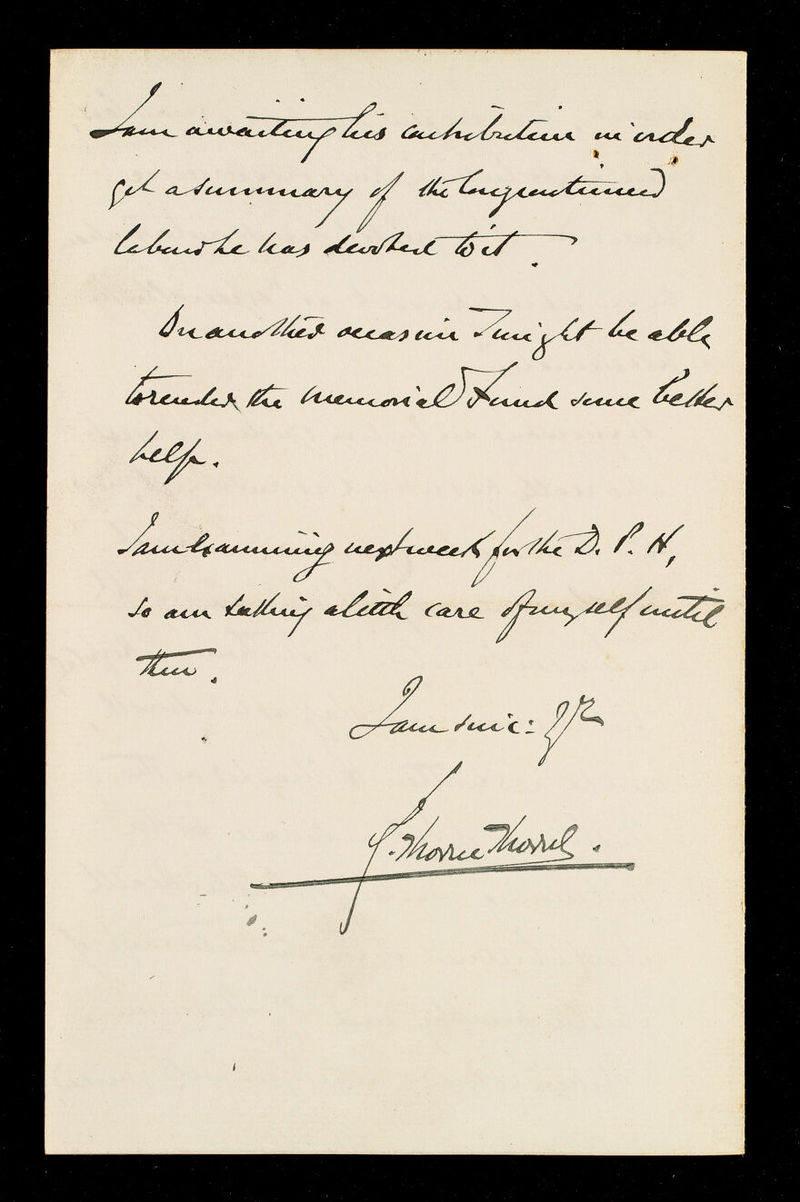 I am awaiting his contribution in order
get a summary of the long continued
labour he has devoted to it.
On another occasion I might be able
to render the Memorial Fund some better
help.
I am examining next week for the D. P. H,
so am taking a little care of myself until
then.
I am sinc: yrs
Thorne Thorne.